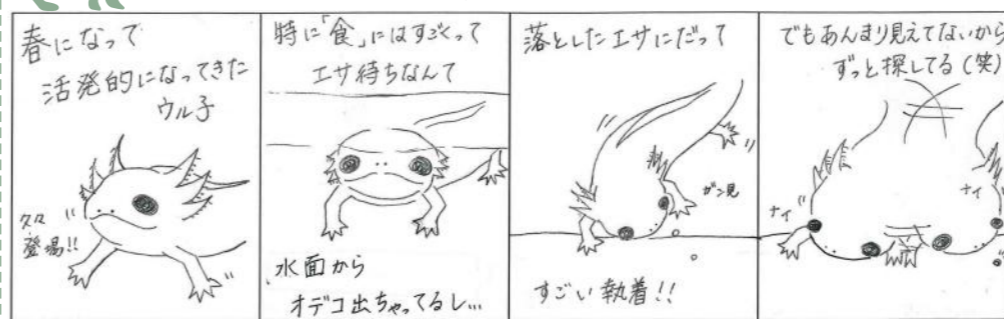 春になって
活発的になってきた
ウル子
久々
登場!!
特に「食」にはすごくって
エサ待ちなんて
水面から
オデコ出ちゃってるし…
落としたエサにだって
ガン見
すごい執着!!
でもあんまり見えてないから
ずっと探してる(笑)
ナイ
ナイ